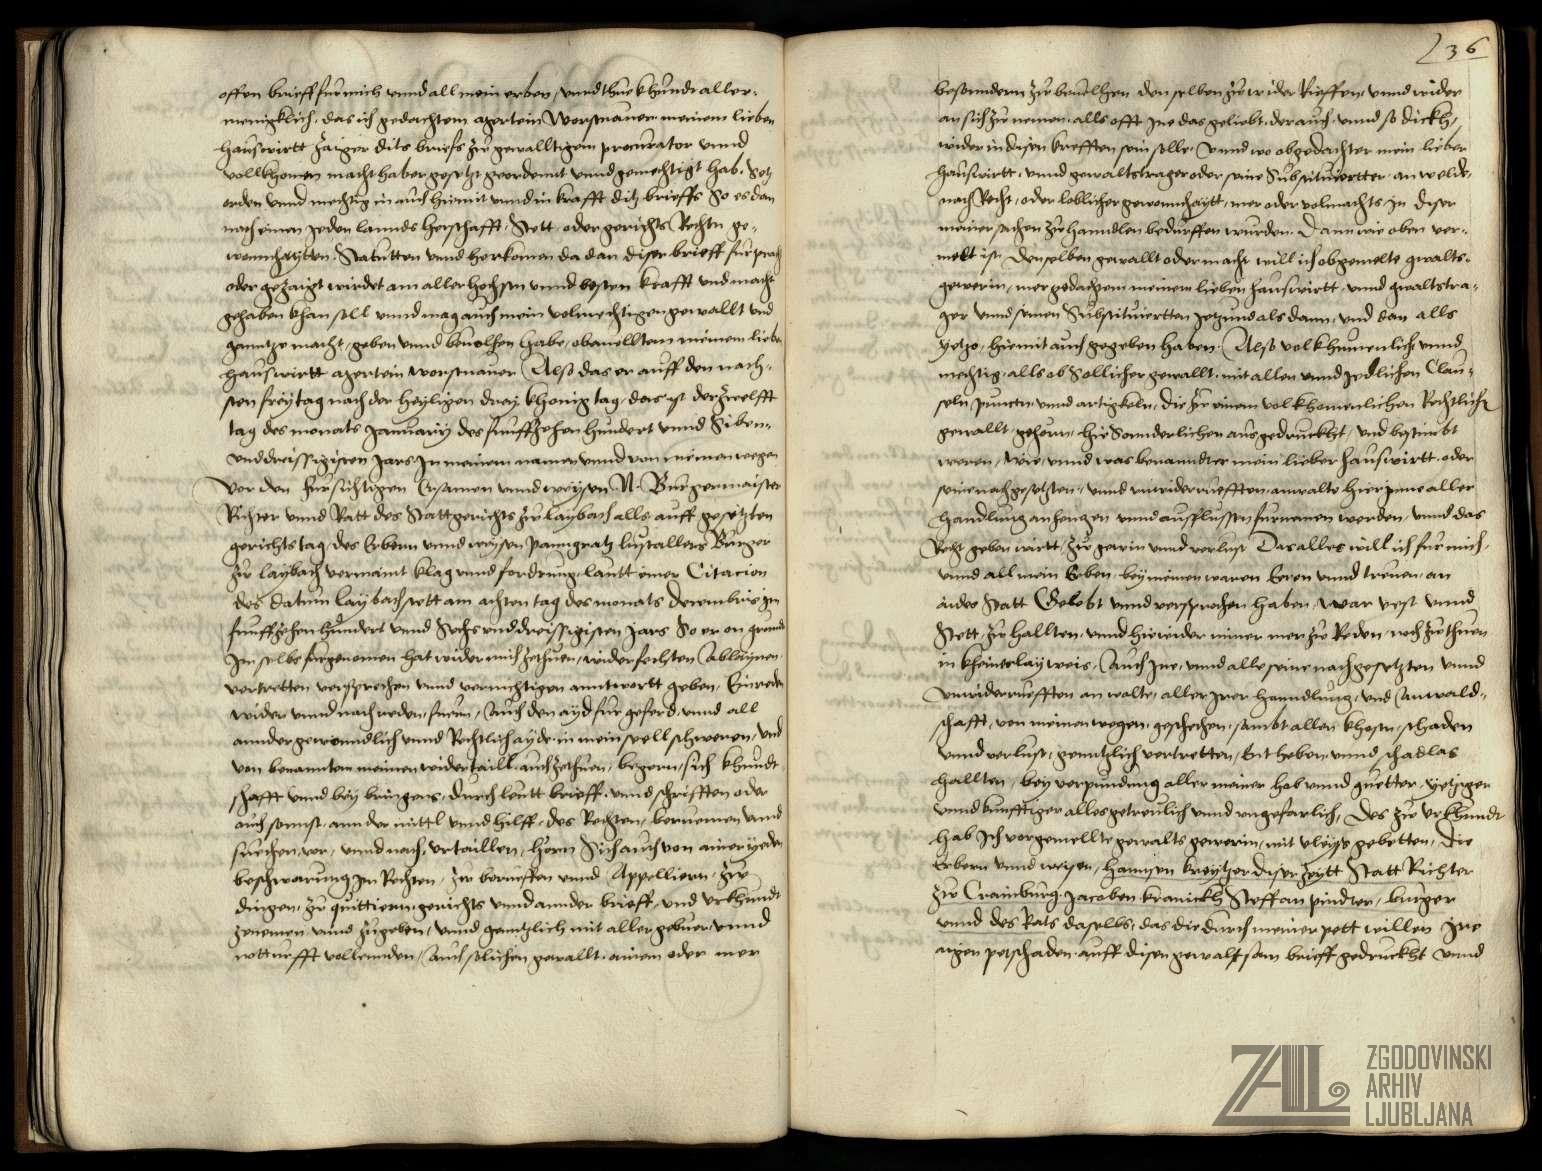 offen brieff fur mich vnnd all mein erben, vnnd thue khundt aller-
menigklich, das ich gedachtem agertein Wernauer meinem lieben
hauswirtt Zaiger dits brieffs zu gewalltigem procurator vnnd
volkhomen macht haber gesetzt geordennt vnnd gemechtigt hab. Setz
orden vnnd mechtig in auch hiemit vnnd in krafft ditz brieffs So es dan
nach einem yeden lannds herschafft, Stett, oder gerichts Rechtn, ge-
wonnhaytten, Statutten vnnd herkomen da dan diser brieff fur pracht
oder gezaigt wirdet am aller hochstn vnnd besten krafft vnd macht
gehaben khan soll vnnd mag auch mein volmechtigen gewallt vnd
ganntze macht, geben vnnd beuolhen habe, obemelltem meinem lieben
hauswirtt agertein wernauer Also das er auff den nach-
sten freytag nach der heyligen drey khonig tag, das ist der zwelfft
tag des monats January des funffzehen hundert vnnd Siben-
vnddreissigisten Jars In meinem namen vnnd von meinen wegen
Vor den fursichtigen Ersamen vnnd weysen N. Burgermaister
Richter vnnd Ratt des Stattgerichts zu laybach alls auff gesetzten
gerichts tag, des Erbern vnnd weysen panngratz lustallers Burger
zu laybach vermaint klag vnnd fordrung, lautt einer Citacion
des datum laybach stett am achten tag des monats decembris im
funffzehen hundert vnnd Sechs vnddreissigisten Jars So er on grundt
Im selbs furgenomen hat wider mich zethuen, widerfechten Ablaynen,
vertretten versprechen vnnd vernichtigen anntwortt geben, Einreden
wider vnnd nach reden, furen, Auch den ayd fur geferd, vnnd all
annder gewonndlich vnnd Rechtlich ayde in mein seell schweren, vnd
von benanntem meinen widertaill auch zethuen, begern, sich khundt
schafft vnnd bey bringens, durch leutt brieff, vnnd schrifften oder
auch sonnst, annder mittl vnnd hilff, des Rechten, vernemen vnnd
suechen, vor, vnnd nach, vrtaillen, horn Sich auch von ainer yeden
beschwarung Im Rechten, zw berueffen vnnd Appelliern, zw
dingen, zu quittiern, gerichts vnnd annder brieff, vnd vrkhundt
zenemen vnnd zugeben, vnnd genntzlich mit aller gebuer vnnd
notturfft vollennden, Auch solichen gewallt, ainem oder mer
236
besonndern zu beuelhen den selben zu wider Rieffen, vnnd wider
an sich zu nemen, alls offt Ine das geliebt, der auch, vnnd so dickh,
wider in disen krefften sein solle. Vnnd wo obgedachter mein lieber
hauswirtt, vnnd gewaltstrager oder seine Substituiertter, an welde,
nach Recht, oder loblicher gewonnhaytt, mer oder volmachts, In diser
meiner sachen zu hanndlen bedurffen wurden, Dann wie oben ver-
melt ist, Denselben gewallt oder macht will ich obgemelte gwalts-
geberin, mer gedachtem meinem lieben hauswirtt, vnnd gwaltstra-
ger vnnd seinen Substituiertten Jetzund als dann, vnd dan alls
yetzo, hiemit auch gegeben haben, Also volkhumenlich vnnd
mechtig, alls ob Sollicher gewallt, mit allen vnnd Jedlichen Clau-
seln, puncten, vnnd artigkeln, die zu einem volkhomenlichen Rechtlichen
gewallt, gehorn, hie Sonnderlichen ausgedruckht, vnd bestimbt
weren, Wie, vnnd was benanndter mein lieber hauswirtt, oder
seine nachgesetzten, vnnd vnwiderruefften anwalte hierinne aller
handlung anhengen vnnd ausflussen furnemen werden, vnnd das
Recht geben wirtt, zu gewin vnnd verlust Das alles will ich fur mich,
vnnd all mein Erben, bey meinen waren Eeren vnnd treuen, an
aides Statt Gelobt vnnd versprochen haben, war vest vnnd
Stett, zu hallten, vnnd hiewider nimer mer zu Reden, noch zu thuen
in kheinerlay weis, Auch Ine, vnnd alle seine nachgesetzten vnnd
Vnwiderruefften anwalte, aller irer hanndlung, vnd Anwald-
schafft, von meinen wegen, geschechen, sambt allen khostn, schaden
vnnd verlust, genntzlich vertretten, Ent heben, vnnd schadlas
hallten, bey verpfundung aller meiner hab vnnd guetter, yetziger
vnnd kunfftiger alles getreulich vnnd vngefarlich, Des zu vrkhundt
hab Ich vorgemellte gewalts geberin, mit vleys gebetten, Die
Erbern vnnd weisen, hannsen kreytzer diser zeytt Statt Richter
zu Crainburg, Jacoben kranickh Steffan pindter, burger
vnnd des Rats daselbs, das die durch meiner pett willen Ire
aigen petschaden, auff disen gewaltsam brieff gedruckht vnnd
ZGODOVINSKI
ARHIV
LJUBLJANA